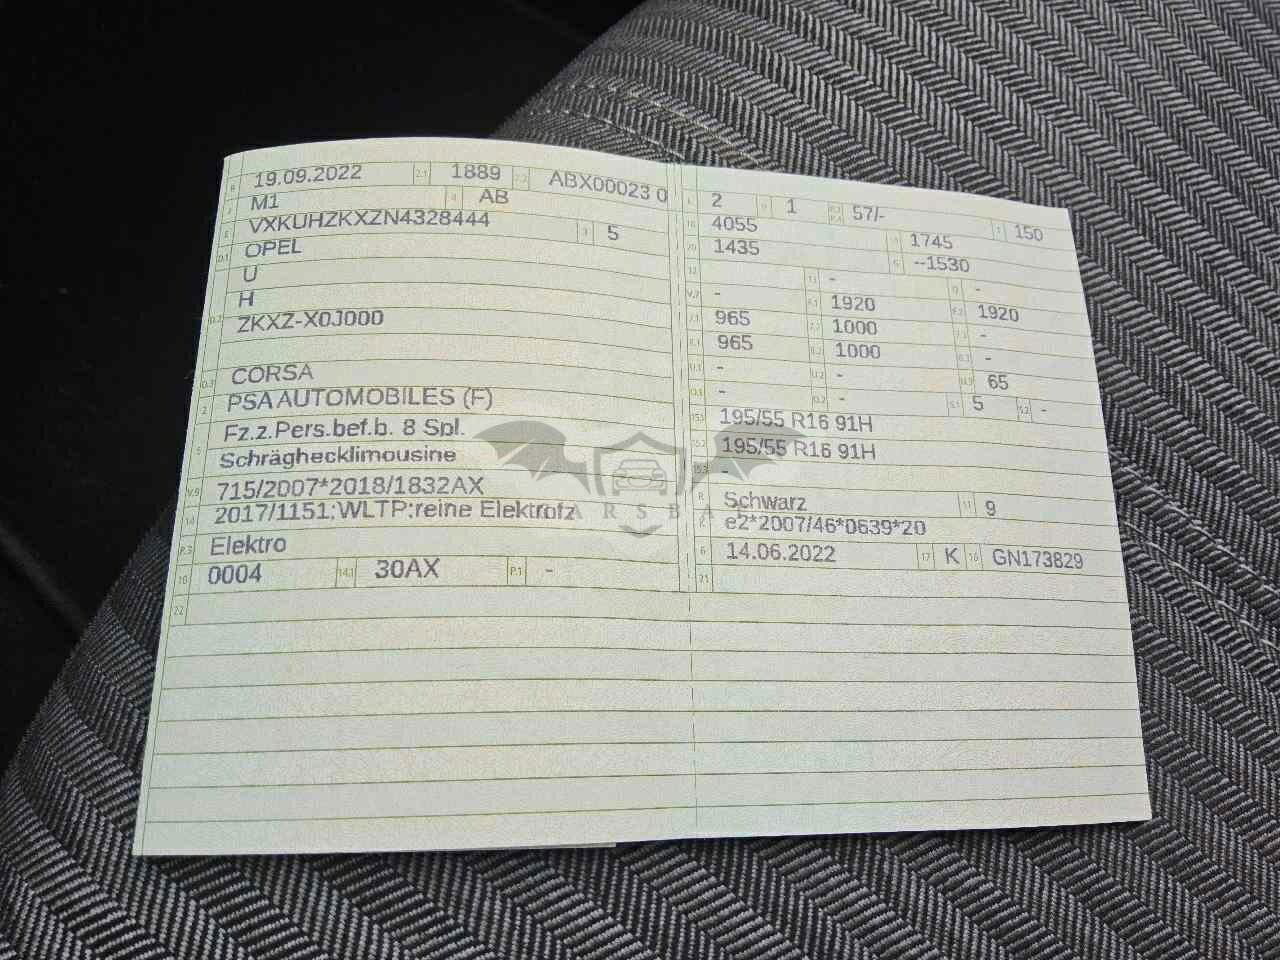 B 19.09.2022 2.1 1889 2.2 ABX00023 0
J M1 4 AB
E VXKUHZKXZN4328444 3 5
D.1 OPEL
U
H
D.2 ZKXZ-X0J000
D.3 CORSA
2 PSA AUTOMOBILES (F)
5 Fz.z.Pers.bef.b. 8 Spl.
Schräghecklimousine
V.9 715/2007*2018/1832AX
14 2017/1151;WLTP;reine Elektrofz
P.3 Elektro
10 0004 14.1 30AX P.1 -
22
L 2 9 1 P.2 P.4 57/- T 150
18 4055 19 1745
20 1435 G --1530
12 13 - Q -
V.7 - F.1 1920 F.2 1920
7.1 965 7.2 1000 7.3 -
8.1 965 8.2 1000 8.3 -
U.1 - U.2 - U.3 65
O.1 - O.2 - S.1 5 S.2 -
15.1 195/55 R16 91H
15.2 195/55 R16 91H
15.3 -
R Schwarz 11 9
K e2*2007/46*0639*20
6 14.06.2022 17 K 16 GN173829
21